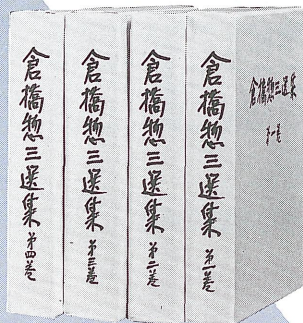 倉橋惣三選集 第四巻
倉橋惣三選集 第三巻
倉橋惣三選集 第二巻
倉橋惣三選集 第一巻
倉橋惣三選集
第一巻